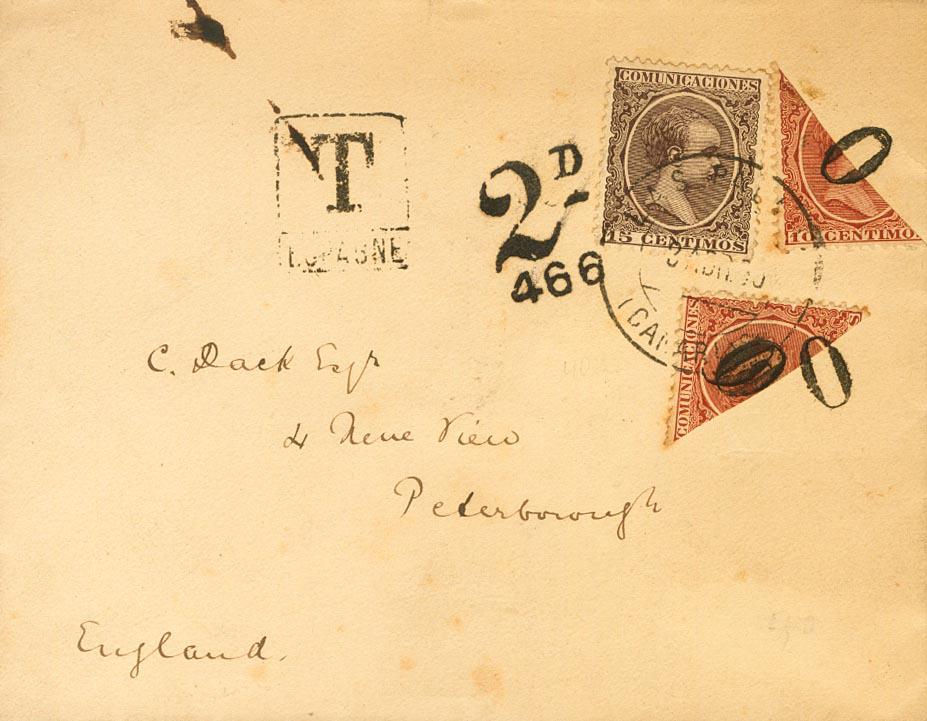 T
ESPAGNE
2D
466
COMUNICACIONES
15 CENTIMOS
10 CENTIMO
COMUNICACIONES
0
0
0
C. Dack Esqr
4 Nene View
Peterborough
England.